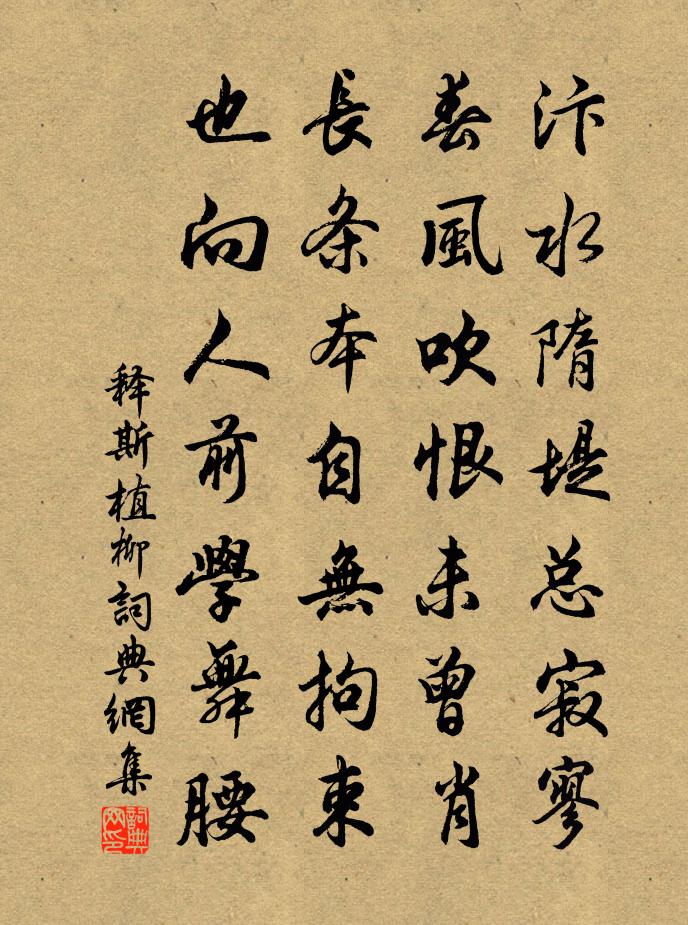 汴水隋堤总寂寥
春風吹恨未曾肖
長条本自無拘束
也向人前學舞腰
释斯植柳詞典網集
詞典网印